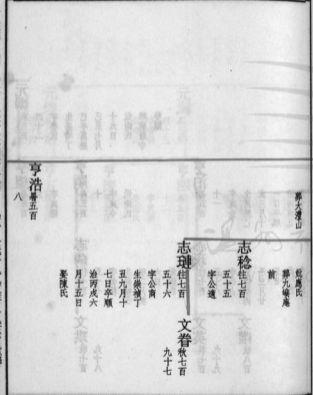 葬大灣山
葬九嶺庵
前
志稔
往七百
五十五
字公遠
志璉
往七百
五十六
字公商
生崇禎丁
丑九月十
七日卒順
治丙戌六
月十五日
娶陳氏
文眷
秋七百
九十七
亨浩
壽五百
八